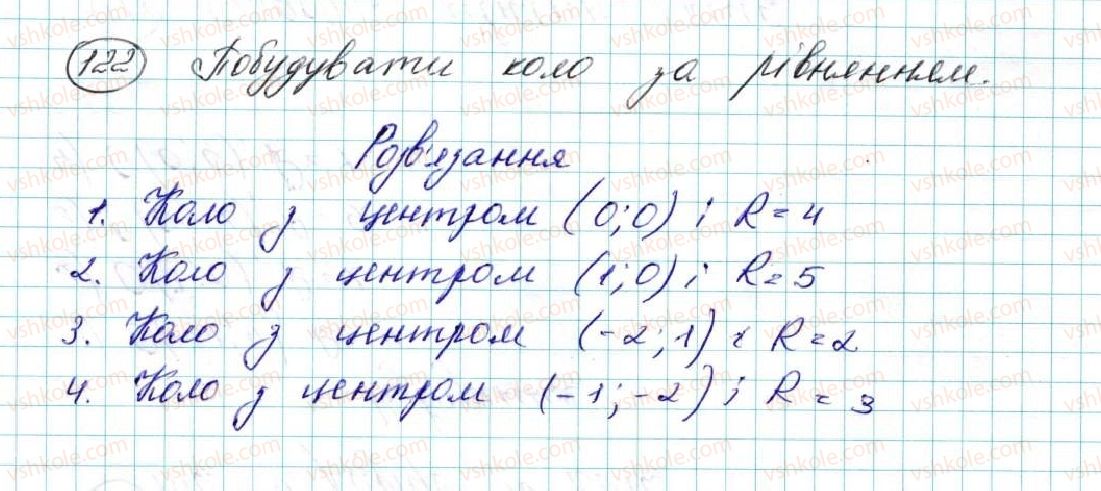 122 Побудувати коло за рівнянням.
Розв'язання
1. Коло з центром (0;0) і R=4
2. Коло з центром (1;0) і R=5
3. Коло з центром (-2;1) і R=2
4. Коло з центром (-1;-2) і R=3